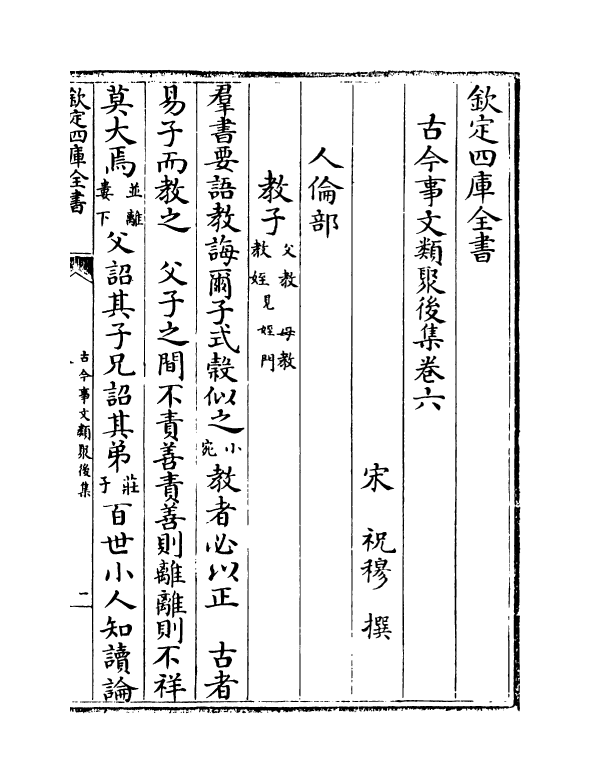 欽定四庫全書
古今事文類聚後集卷六
宋 祝穆 撰
人倫部
教子 父教 母教 教姪見姪門
羣書要語教誨爾子式榖似之小宛教者必以正 古者
易子而教之 父子之間不責善責善則離離則不祥
莫大焉並離婁下父詔其子兄詔其弟莊子百世小人知讀論
欽定四庫全書
古今事文類聚後集